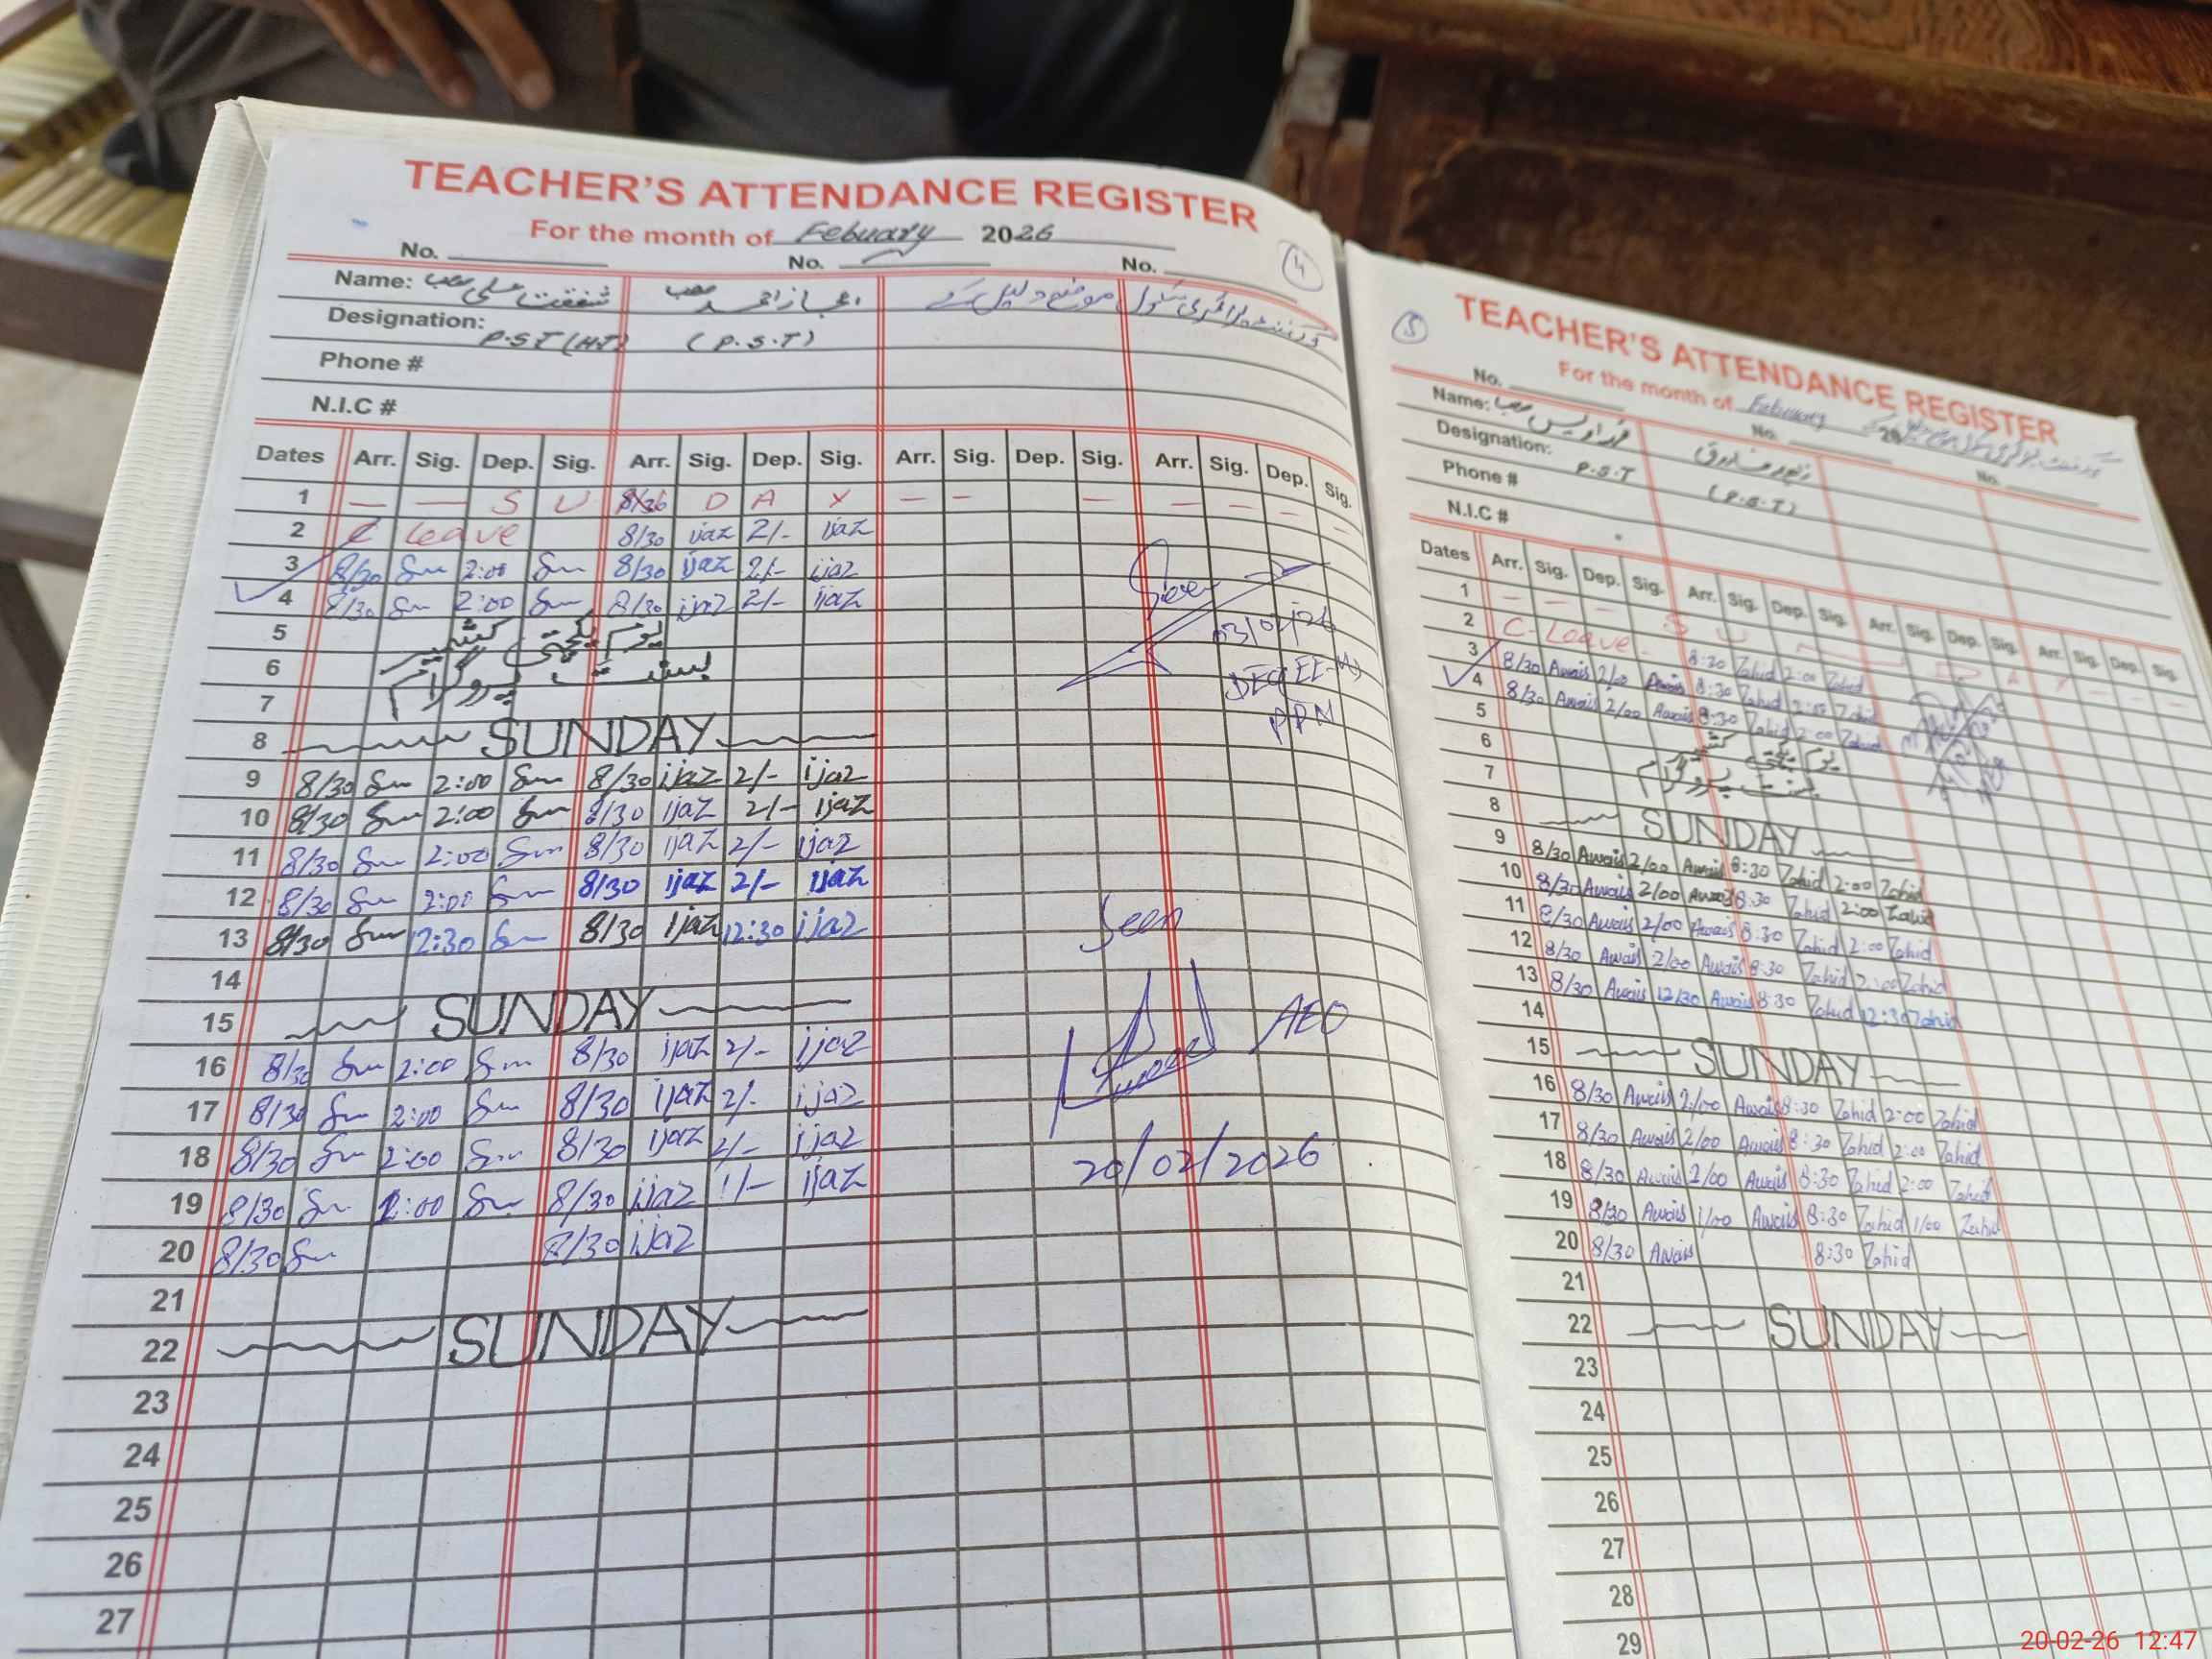 TEACHER'S ATTENDANCE REGISTER
For the month of Febuary 2026
No. No. No.
4
Name: شفقت علی صاحب اعجاز احمد صاحب گورنمنٹ پرائمری سکول موضع
Designation: P.S.T (H.T) (P.S.T)
Phone #
N.I.C #
Dates Arr. Sig. Dep. Sig. Arr. Sig. Dep. Sig. Arr. Sig. Dep. Sig. Arr. Sig. Dep. Sig.
1 — — S U D A Y — — — — — — —
2 C Leave 8/30 ijaz 2/- ijaz
3 8/30 2:00 8/30 ijaz 2/- ijaz
4 8/30 2:00 8/30 ijaz 2/- ijaz
Seen
03/02/26
5 یوم یکجہتی کشمیر
6 بسنت پروگرام
DEO EE-M
PPN
7
8 SUNDAY
9 8/30 2:00 8/30 ijaz 2/- ijaz
10 8/30 2:00 8/30 ijaz 2/- ijaz
11 8/30 2:00 8/30 ijaz 2/- ijaz
12 8/30 2:00 8/30 ijaz 2/- ijaz
13 8/30 12:30 8/30 ijaz 12:30 ijaz
Seen
14
15 SUNDAY
AEO
16 8/30 2:00 8/30 ijaz 2/- ijaz
17 8/30 2:00 8/30 ijaz 2/- ijaz
18 8/30 2:00 8/30 ijaz 2/- ijaz
20/02/2026
19 8/30 1:00 8/30 ijaz 1/- ijaz
20 8/30 8/30 ijaz
21
22 SUNDAY
23
24
25
26
27
5
TEACHER'S ATTENDANCE REGISTER
For the month of Febuary 20
No. No. No.
Name: محمد اویس صاحب زاہد فاروق
Designation: P.S.T (P.S.T)
Phone #
N.I.C #
Dates Arr. Sig. Dep. Sig. Arr. Sig. Dep. Sig. Arr. Sig. Dep. Sig. Arr. Sig. Dep. Sig.
1 — — — S U D A Y
2 C-Leave 8:30 Zahid 2:00 Zahid
3 8/30 Awais 2/00 Awais 8:30 Zahid 2:00 Zahid
4 8/30 Awais 2/00 Awais 8:30 Zahid 2:00 Zahid
5 یوم یکجہتی کشمیر
6 بسنت پروگرام
7
8 SUNDAY
9 8/30 Awais 2/00 Awais 8:30 Zahid 2:00 Zahid
10 8/30 Awais 2/00 Awais 8:30 Zahid 2:00 Zahid
11 8/30 Awais 2/00 Awais 8:30 Zahid 2:00 Zahid
12 8/30 Awais 2/00 Awais 8:30 Zahid 2:00 Zahid
13 8/30 Awais 12/30 Awais 8:30 Zahid 12:30 Zahid
14
15 SUNDAY
16 8/30 Awais 2/00 Awais 8:30 Zahid 2:00 Zahid
17 8/30 Awais 2/00 Awais 8:30 Zahid 2:00 Zahid
18 8/30 Awais 2/00 Awais 8:30 Zahid 2:00 Zahid
19 8/30 Awais 1/00 Awais 8:30 Zahid 1/00 Zahid
20 8/30 Awais 8:30 Zahid
21
22 SUNDAY
23
24
25
26
27
28
29
20-02-26 12:47